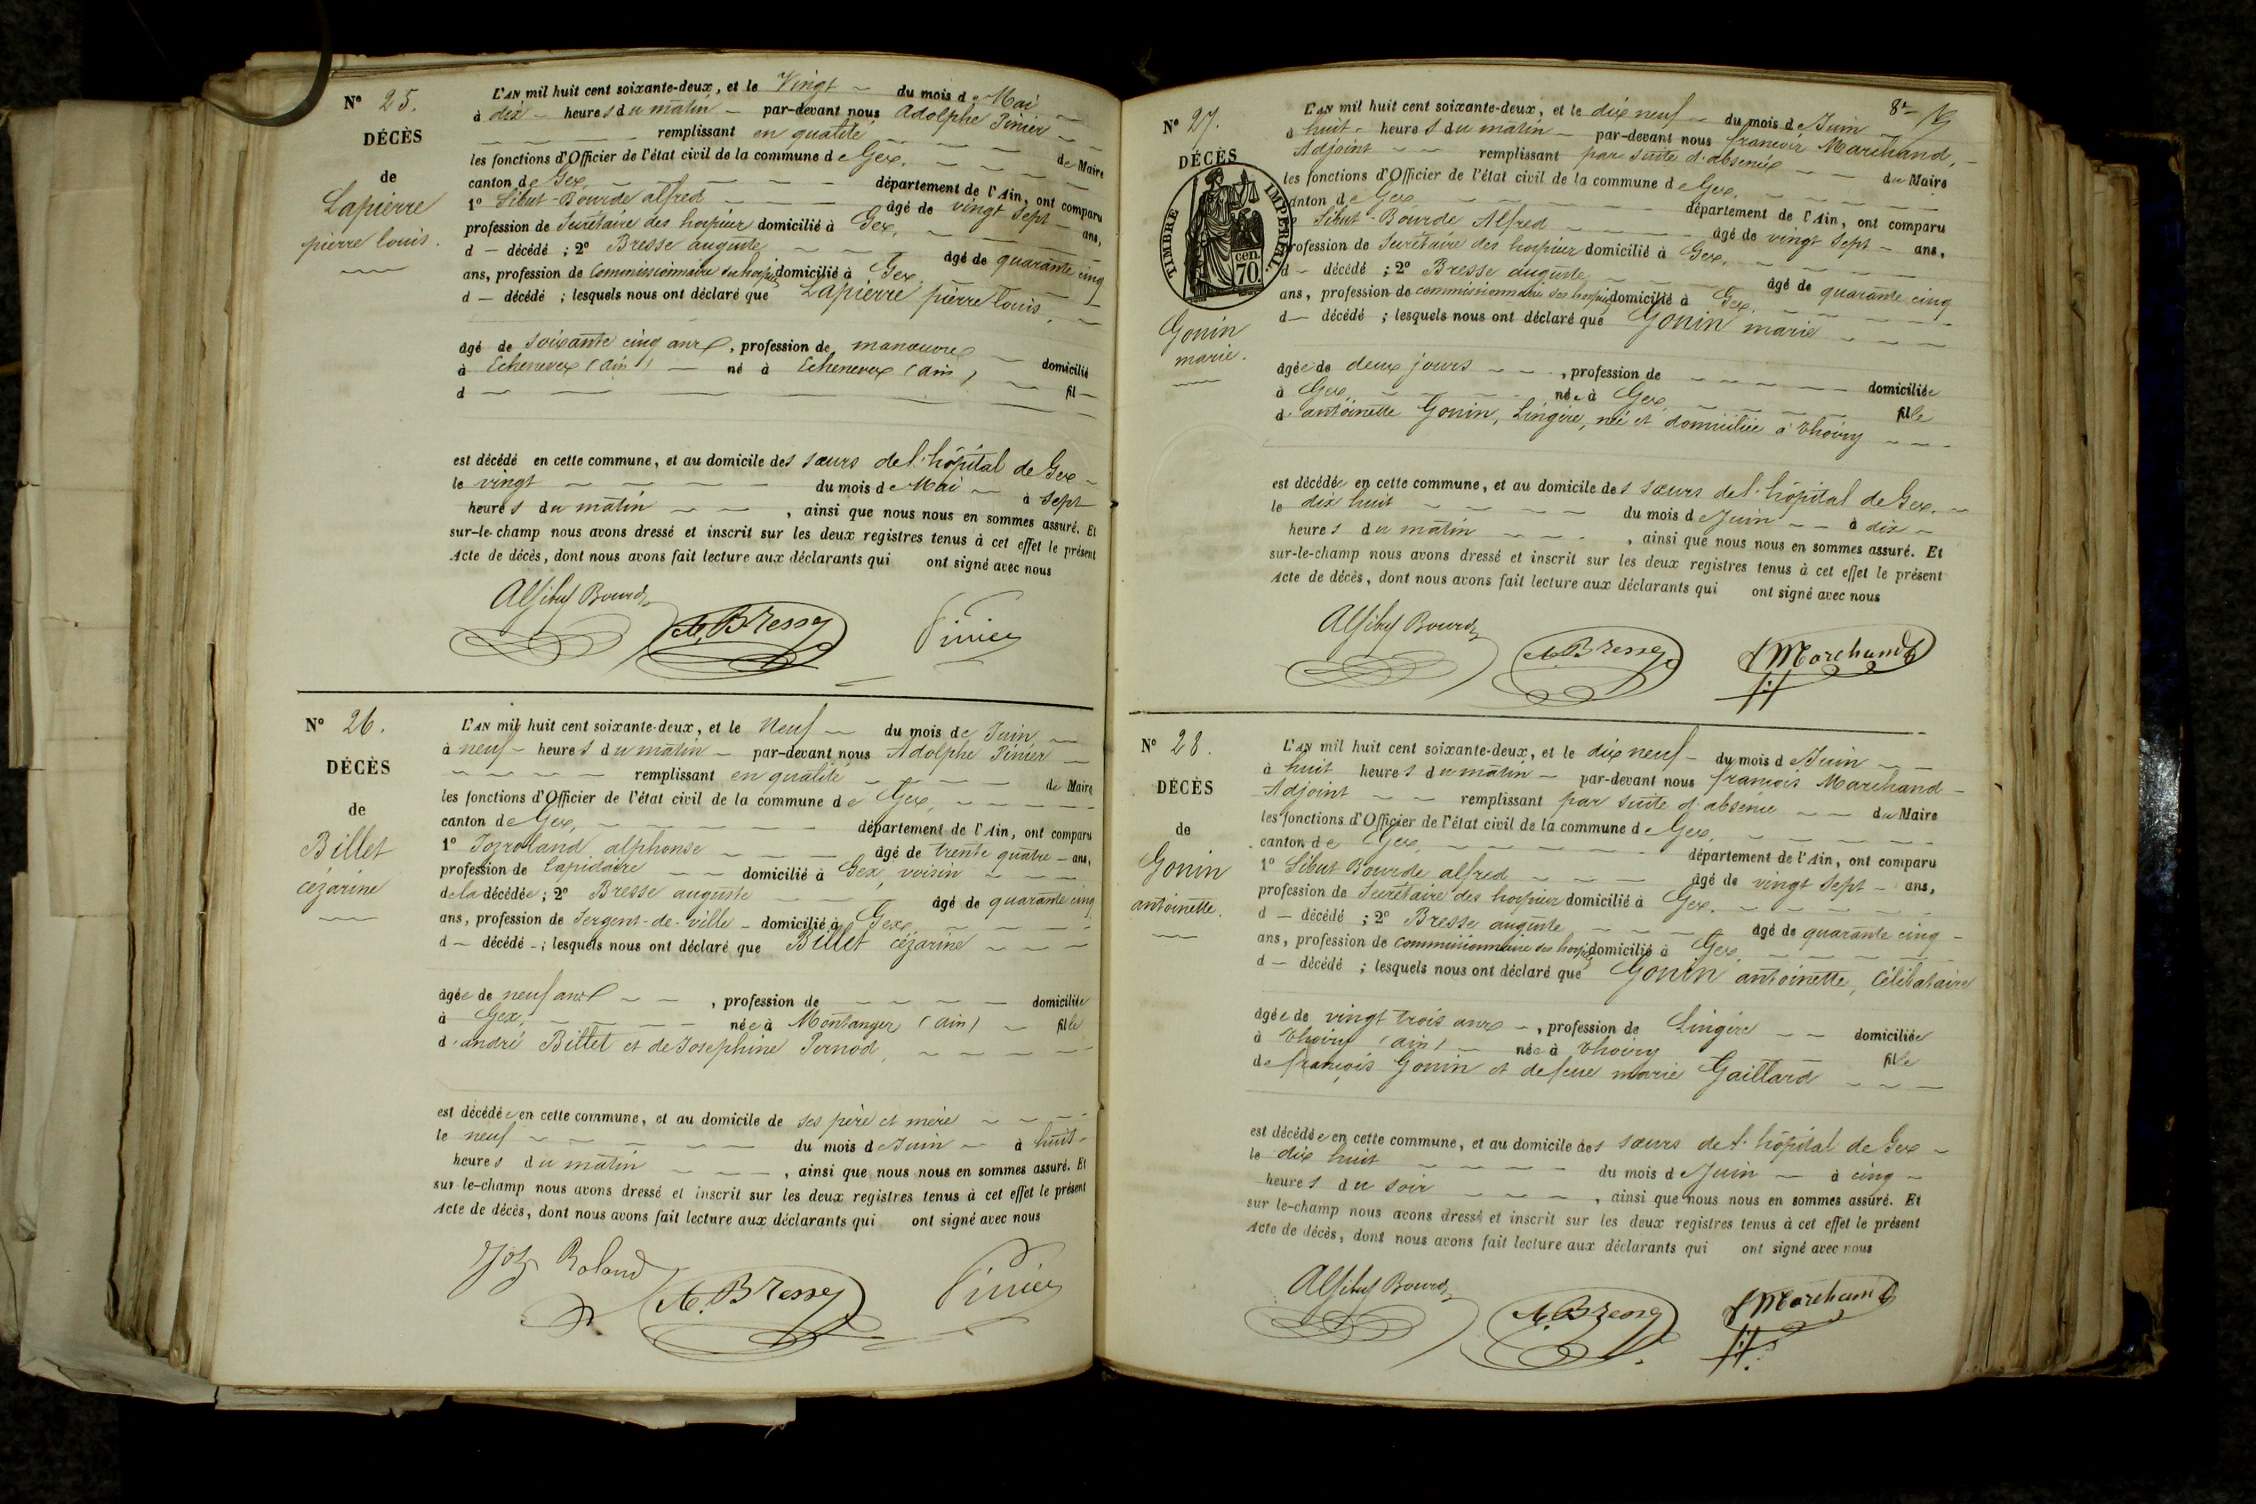 N° 25.
DÉCÈS
de
Lapierre
pierre louis.
L'AN mil huit cent soixante-deux, et le Vingt du mois de Mai
à dix heures du matin par-devant nous Adolphe Pinier
remplissant en qualité de Maire
les fonctions d'Officier de l'état civil de la commune de Gex,
canton de Gex, département de l'Ain, ont comparu
1° Sibut-Bourde alfred âgé de vingt sept ans,
profession de Secrétaire des hospices domicilié à Gex,
d décédé ; 2° Bresse auguste âgé de quarante cinq
ans, profession de Commissionnaire des hospices domicilié à Gex,
d décédé ; lesquels nous ont déclaré que Lapierre pierre louis,
âgé de soixante cinq ans, profession de manœuvre domicilié
à Echenevex (ain) né à Echenevex (ain) fil
d
est décédé en cette commune, et au domicile des sœurs de l'hôpital de Gex
le vingt du mois de Mai à sept
heures du matin , ainsi que nous nous en sommes assuré. Et
sur-le-champ nous avons dressé et inscrit sur les deux registres tenus à cet effet le présent
Acte de décès, dont nous avons fait lecture aux déclarants qui ont signé avec nous
Alf Sibut Bourde A. Bresse Pinier
N° 26.
DÉCÈS
de
Billet
cézarine
L'AN mil huit cent soixante-deux, et le Neuf du mois de Juin
à neuf heures du matin par-devant nous Adolphe Pinier
remplissant en qualité de Maire
les fonctions d'Officier de l'état civil de la commune de Gex,
canton de Gex, département de l'Ain, ont comparu
1° Jozroland alphonse âgé de trente quatre ans,
profession de lapidaire domicilié à Gex, voisin
de la décédée ; 2° Bresse auguste âgé de quarante cinq
ans, profession de Sergent-de-ville domicilié à Gex
d décédé ; lesquels nous ont déclaré que Billet cézarine
âgée de neuf ans , profession de domiciliée
à Gex, née à Montanges (ain) fille
d'andré Billet et de Josephine Pernod,
est décédée en cette commune, et au domicile de ses père et mère
le neuf du mois de Juin à huit
heures du matin , ainsi que nous nous en sommes assuré. Et
sur-le-champ nous avons dressé et inscrit sur les deux registres tenus à cet effet le présent
Acte de décès, dont nous avons fait lecture aux déclarants qui ont signé avec nous
Joz Roland A. Bresse Pinier
8e
N° 27.
DÉCÈS
TIMBRE IMPÉRIAL.
70 cen.
Gonin
marie.
L'AN mil huit cent soixante-deux, et le dix neuf du mois de Juin
à huit heures du matin par-devant nous françois Marchand,
Adjoint remplissant par suite d'absence du Maire
les fonctions d'Officier de l'état civil de la commune de Gex,
canton de Gex, département de l'Ain, ont comparu
Sibut-Bourde Alfred âgé de vingt sept ans,
profession de Secrétaire des hospices domicilié à Gex,
d décédé ; 2° Bresse auguste âgé de quarante cinq
ans, profession de commissionnaire des hospices domicilié à Gex,
d décédé ; lesquels nous ont déclaré que Gonin marie
âgée de deux jours , profession de domiciliée
à Gex, née à Gex, fille
d'antoinette Gonin, Lingère, née et domiciliée à Thoiry
est décédée en cette commune, et au domicile des sœurs de l'hôpital de Gex,
le dix huit du mois de Juin à dix
heures du matin , ainsi que nous nous en sommes assuré. Et
sur-le-champ nous avons dressé et inscrit sur les deux registres tenus à cet effet le présent
Acte de décès, dont nous avons fait lecture aux déclarants qui ont signé avec nous
Alf Sibut Bourde A. Bresse f Marchand
N° 28.
DÉCÈS
de
Gonin
antoinette.
L'AN mil huit cent soixante-deux, et le dix neuf du mois de Juin
à huit heures du matin par-devant nous françois Marchand
Adjoint remplissant par suite d'absence du Maire
les fonctions d'Officier de l'état civil de la commune de Gex,
canton de Gex, département de l'Ain, ont comparu
1° Sibut Bourde alfred âgé de vingt sept ans,
profession de Secrétaire des hospices domicilié à Gex,
d décédé ; 2° Bresse auguste âgé de quarante cinq
ans, profession de Commissionnaire des hospices domicilié à Gex,
d décédé ; lesquels nous ont déclaré que Gonin antoinette, Célibataire
âgée de vingt trois ans , profession de Lingère domiciliée
à Thoiry (ain) née à Thoiry fille
de françois Gonin et de feue marie Gaillard
est décédée en cette commune, et au domicile des sœurs de l'hôpital de Gex
le dix huit du mois de Juin à cinq
heures du soir , ainsi que nous nous en sommes assuré. Et
sur le-champ nous avons dressé et inscrit sur les deux registres tenus à cet effet le présent
Acte de décès, dont nous avons fait lecture aux déclarants qui ont signé avec nous
Alf Sibut Bourde A. Bresse f Marchand